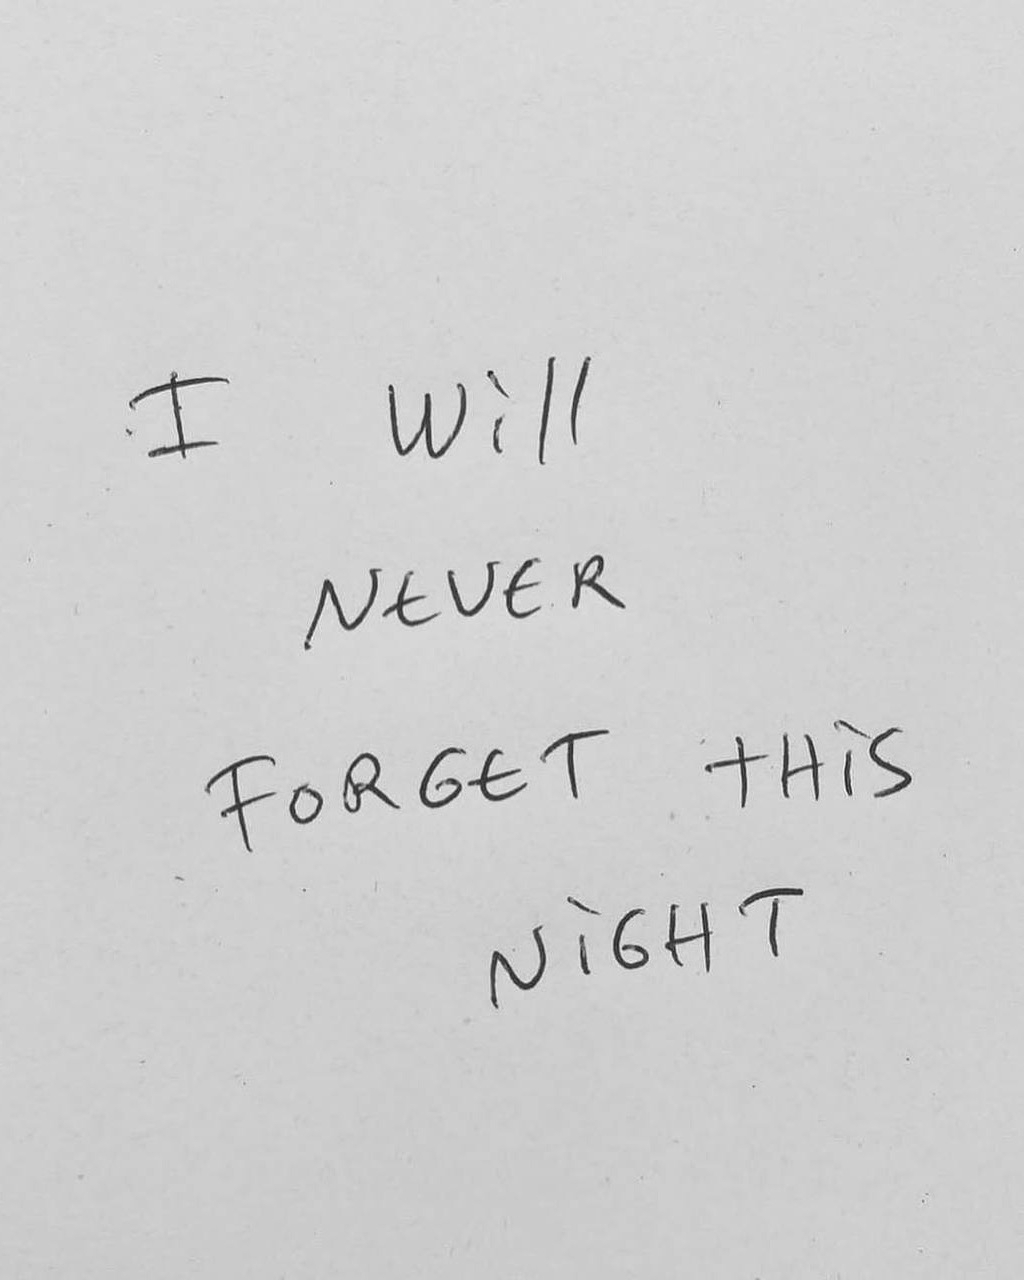 I Will
NEVER
FORGET THiS
NiGHT